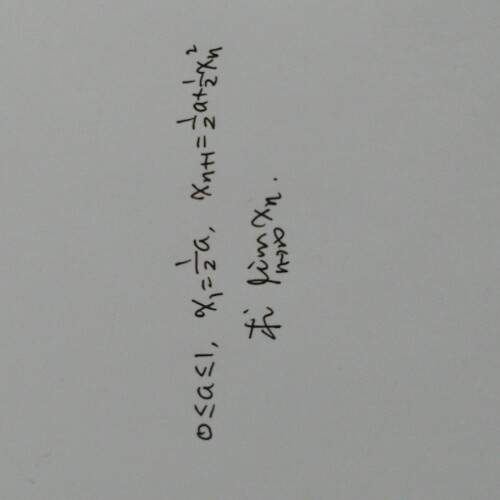 0≤a≤1, x₁=½a, xₙ₊₁=½a+½xₙ²
求 lim_{n→∞} xₙ.